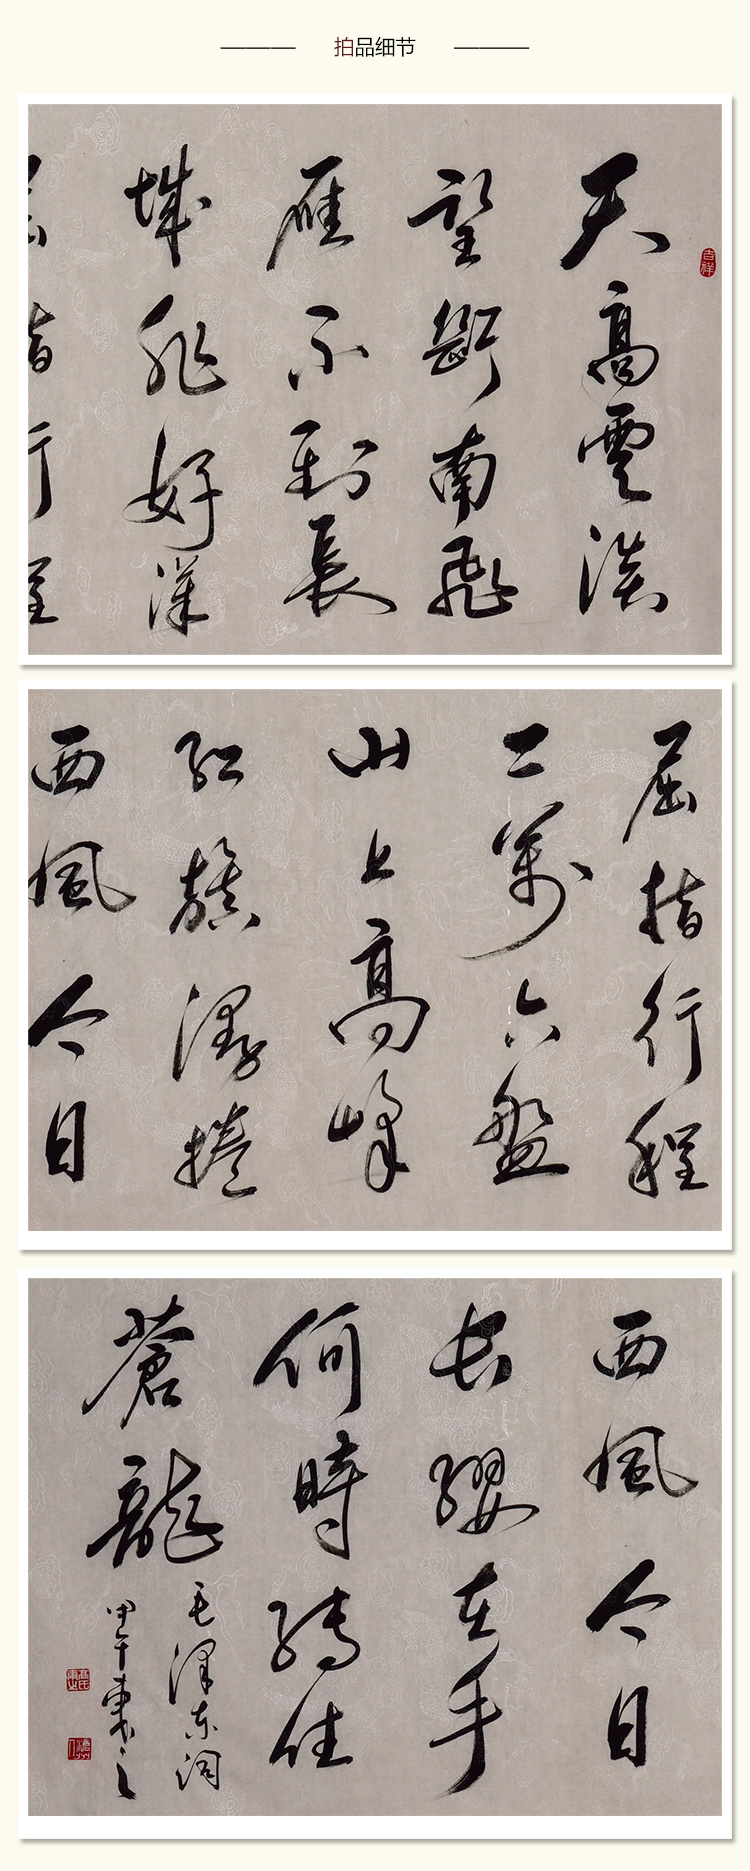 拍品细节
吉祥
天高雲淡
望斷南飛
雁不到長
城非好漢
屈指行程
二萬六盤
山上高峰
紅旗漫捲
西風今日
西風今日
長纓在手
何時縛住
蒼龍
毛澤東词
甲午東之